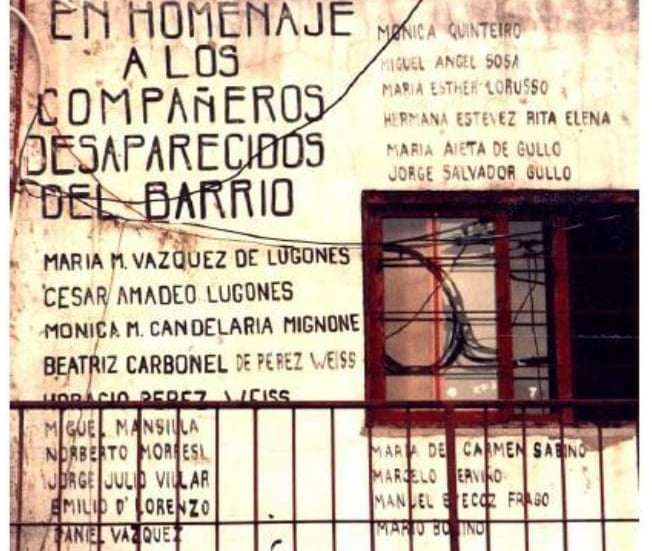 EN HOMENAJE
A LOS
COMPAÑEROS
DESAPARECIDOS
DEL BARRIO
MARIA M. VAZQUEZ DE LUGONES
CESAR AMADEO LUGONES
MONICA M. CANDELARIA MIGNONE
BEATRIZ CARBONEL DE PEREZ WEISS
HORACIO PEREZ WEISS
MIGUEL MANSILLA
NORBERTO MORRESI
JORGE JULIO VILLAR
EMILIO D'LORENZO
DANIEL VAZQUEZ
MONICA QUINTEIRO
MIGUEL ANGEL SOSA
MARIA ESTHER LORUSSO
HERMANA ESTEVEZ RITA ELENA
MARIA AIETA DE GULLO
JORGE SALVADOR GULLO
MARIA DEL CARMEN SABINO
MARCELO
MANUEL FRAGO
MARIO